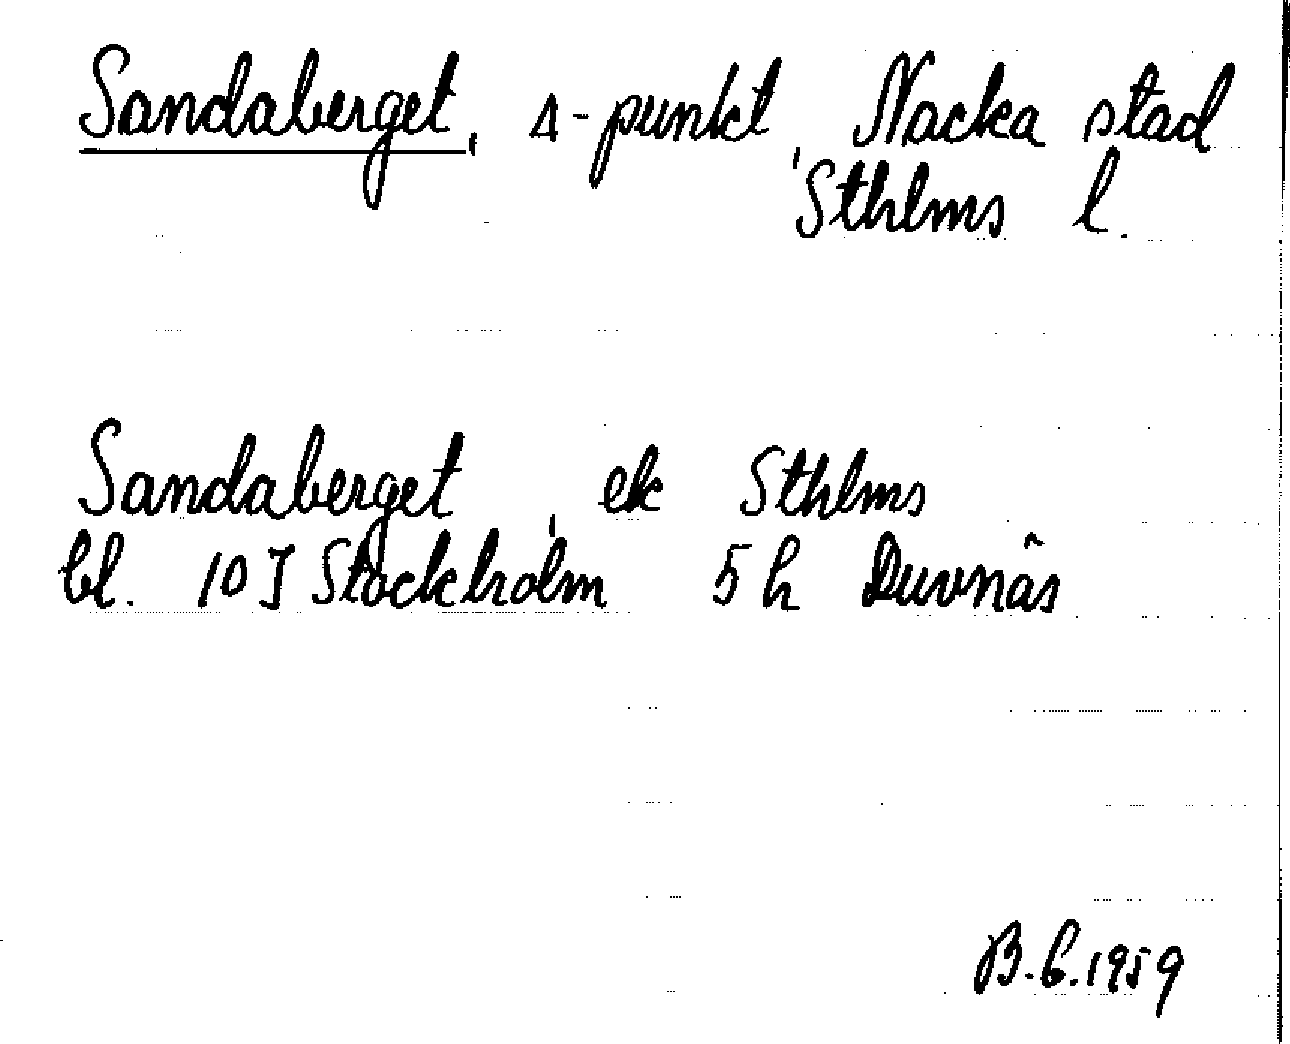 Sandaberget, Δ-punkt, Nacka stad
Sthlms l.
Sandaberget, ek Sthlms
bl. 10 J Stockholm 5 h Duvnäs
B.G.1959